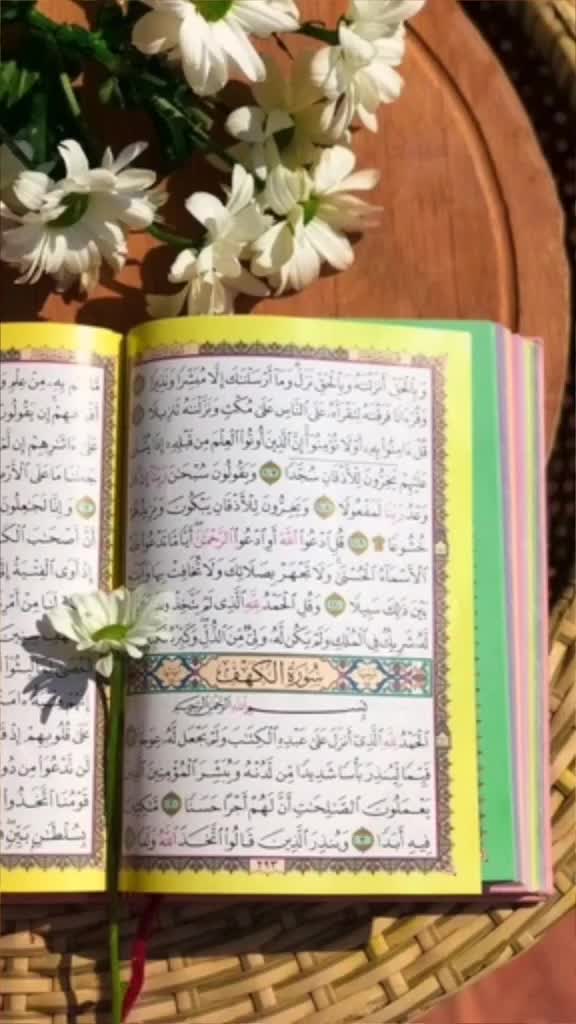 وَبِالْحَقِّ أَنزَلْنَٰهُ وَبِالْحَقِّ نَزَلَ وَمَآ أَرْسَلْنَٰكَ إِلَّا مُبَشِّرًا وَنَذِيرًا
وَقُرْءَانًا فَرَقْنَٰهُ لِتَقْرَأَهُۥ عَلَى النَّاسِ عَلَىٰ مُكْثٍ وَنَزَّلْنَٰهُ تَنزِيلًا
قُلْ ءَامِنُوا۟ بِهِۦٓ أَوْ لَا تُؤْمِنُوٓا۟ إِنَّ الَّذِينَ أُوتُوا۟ الْعِلْمَ مِن قَبْلِهِۦٓ إِذَا يُتْلَىٰ
عَلَيْهِمْ يَخِرُّونَ لِلْأَذْقَانِ سُجَّدًا ١٠٧ وَيَقُولُونَ سُبْحَٰنَ رَبِّنَآ إِن كَانَ
وَعْدُ رَبِّنَا لَمَفْعُولًا ١٠٨ وَيَخِرُّونَ لِلْأَذْقَانِ يَبْكُونَ وَيَزِيدُهُمْ
خُشُوعًا ۩ ١٠٩ قُلِ ادْعُوا۟ اللَّهَ أَوِ ادْعُوا۟ الرَّحْمَٰنَ أَيًّا مَّا تَدْعُوا۟ فَلَهُ
الْأَسْمَآءُ الْحُسْنَىٰ وَلَا تَجْهَرْ بِصَلَاتِكَ وَلَا تُخَافِتْ بِهَا وَابْتَغِ
بَيْنَ ذَٰلِكَ سَبِيلًا ١١٠ وَقُلِ الْحَمْدُ لِلَّهِ الَّذِى لَمْ يَتَّخِذْ وَلَدًا
لَّهُۥ شَرِيكٌ فِى الْمُلْكِ وَلَمْ يَكُن لَّهُۥ وَلِىٌّ مِّنَ الذُّلِّ وَكَبِّرْهُ تَكْبِيرًا
سُورَةُ الكَهْفِ
بِسْمِ اللَّهِ الرَّحْمَٰنِ الرَّحِيمِ
الْحَمْدُ لِلَّهِ الَّذِىٓ أَنزَلَ عَلَىٰ عَبْدِهِ الْكِتَٰبَ وَلَمْ يَجْعَل لَّهُۥ عِوَجَا
قَيِّمًا لِّيُنذِرَ بَأْسًا شَدِيدًا مِّن لَّدُنْهُ وَيُبَشِّرَ الْمُؤْمِنِينَ الَّذِينَ
يَعْمَلُونَ الصَّٰلِحَٰتِ أَنَّ لَهُمْ أَجْرًا حَسَنًا ٢ مَّٰكِثِينَ
فِيهِ أَبَدًا ٣ وَيُنذِرَ الَّذِينَ قَالُوا۟ اتَّخَذَ اللَّهُ وَلَدًا
٢٩٣
مَّا لَهُم بِهِۦ مِنْ عِلْمٍ وَ
إِن يَقُولُونَ
عَلَىٰٓ ءَاثَٰرِهِمْ إِن لَّمْ
جَعَلْنَا مَا عَلَى الْأَرْضِ
وَإِنَّا لَجَٰعِلُونَ
أَنَّ أَصْحَٰبَ الْكَ
إِذْ أَوَى الْفِتْيَةُ إِلَى
لَنَا مِنْ أَمْرِنَا
عَلَىٰ قُلُوبِهِمْ إِذْ قَ
لَن نَّدْعُوَا۟ مِن دُونِ
قَوْمُنَا اتَّخَذُوا۟
بِسُلْطَٰنٍۭ بَيِّنٍ فَ